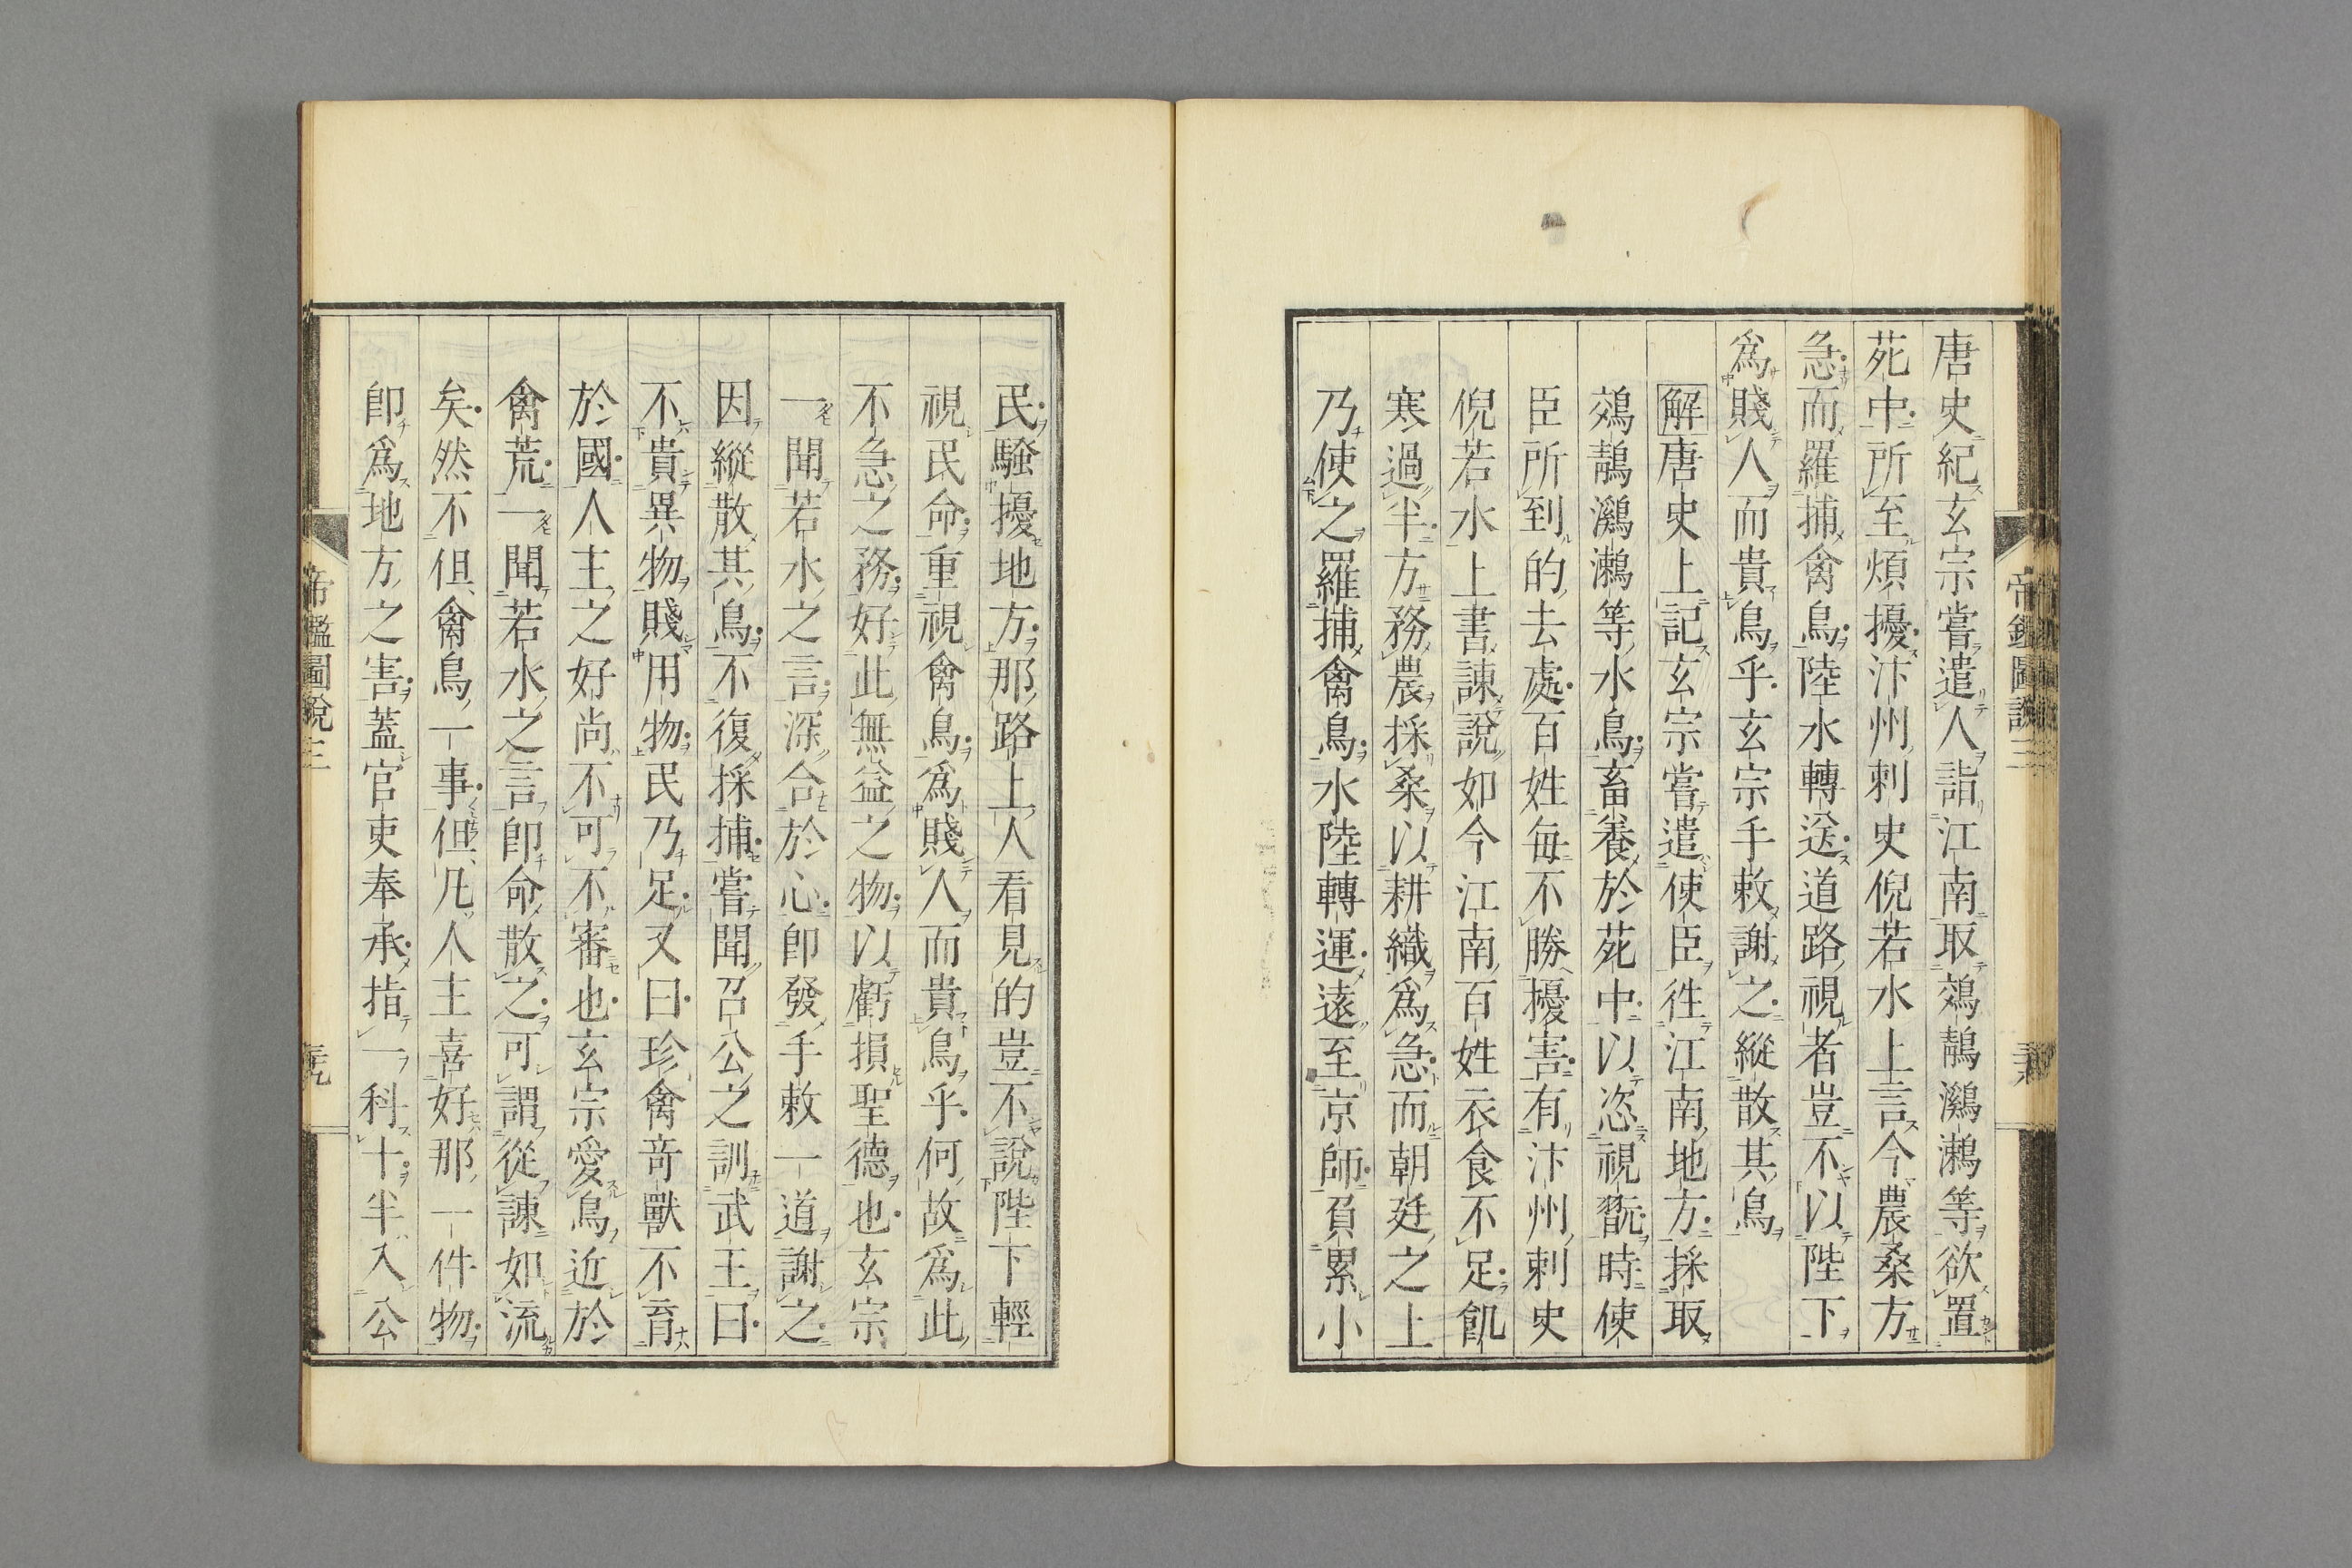 唐史紀玄宗嘗遣人詣江南取鵁鶄鸂鶒等欲置
苑中所至煩擾汴州刺史倪若水上言今農桑方
急而羅捕禽鳥陸水轉送道路視者豈不以陛下
爲賤人而貴鳥乎玄宗手敕謝之縱散其鳥
解唐史上記玄宗嘗遣使臣徃江南地方採取
鵁鶄鸂鶒等水鳥畜養於苑中以恣視翫時使
臣所到的去處百姓每不勝擾害有汴州刺史
倪若水上書諫說如今江南百姓衣食不足飢
寒過半方務農採桑以耕織爲急而朝廷之上
乃使之羅捕禽鳥水陸轉運遠至京師負累小
帝鑑圖說三
民騷擾地方那路上人看見的豈不說陛下輕
視民命重視禽鳥爲賤人而貴鳥乎何故爲此
不急之務好此無益之物以虧損聖德也玄宗
一聞若水之言深合於心即發手敕一道謝之
因縱散其鳥不復採捕嘗聞召公之訓武王曰
不貴異物賤用物民乃足又曰珍禽奇獸不育
於國人主之好尚不可不審也玄宗愛鳥近於
禽荒一聞若水之言即命散之可謂從諫如流
矣然不但禽鳥一事但凡人主喜好那一件物
即爲地方之害蓋官吏奉承指一科十半入公
帝鑑圖說三